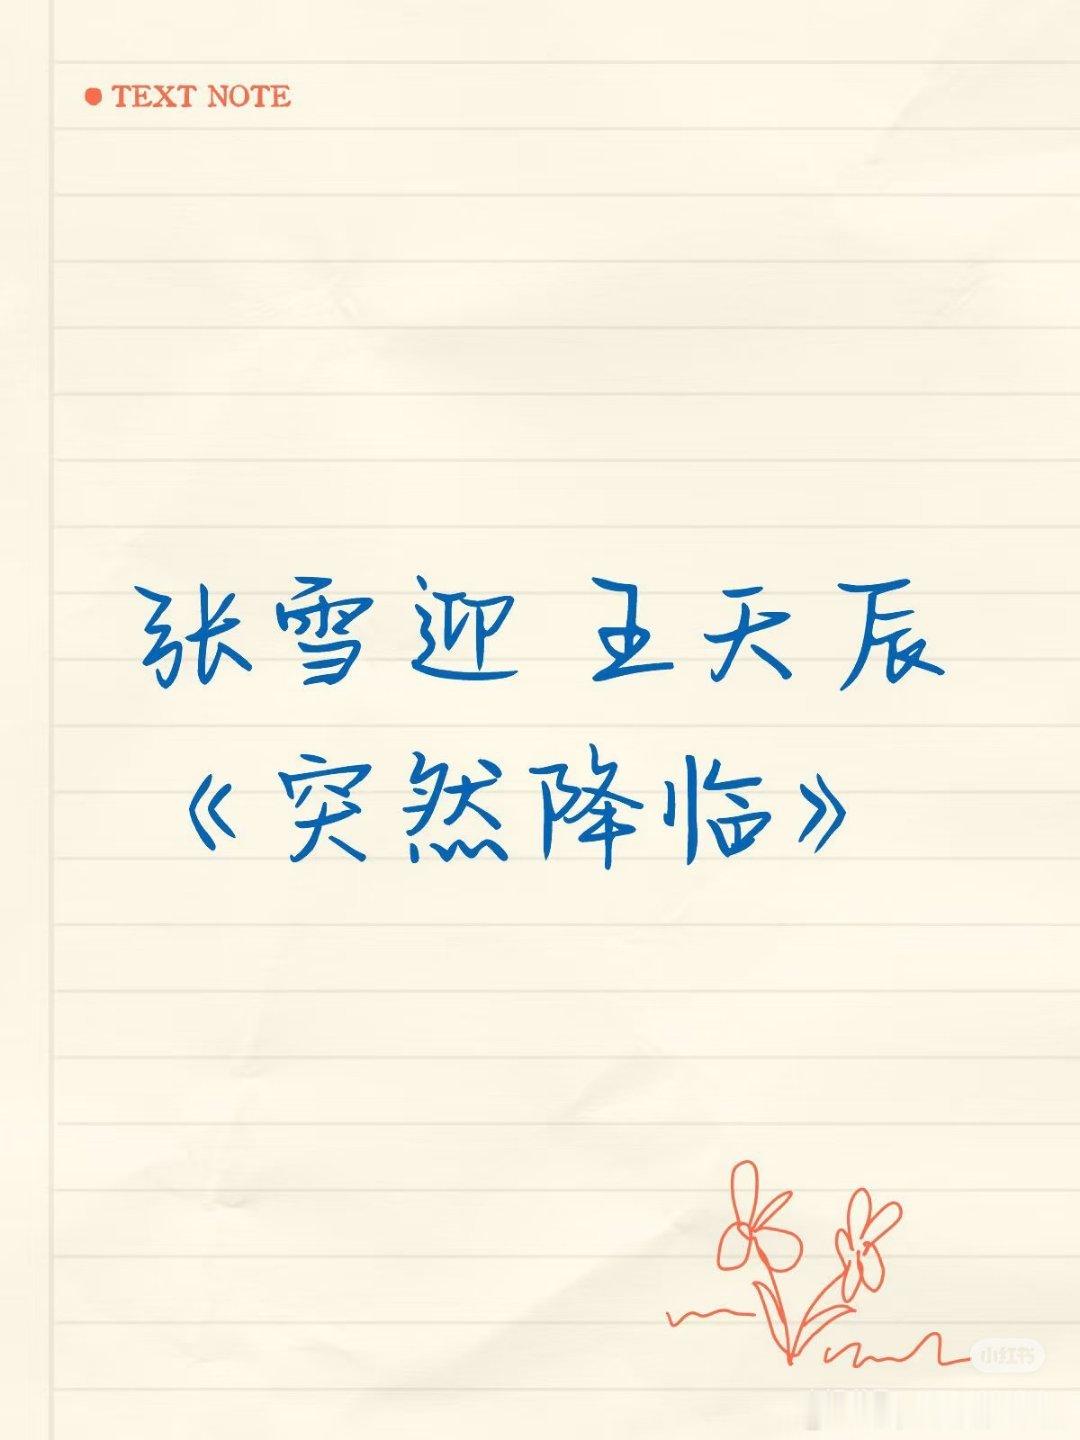 TEXT NOTE
张雪迎 王天辰
《突然降临》
小红书